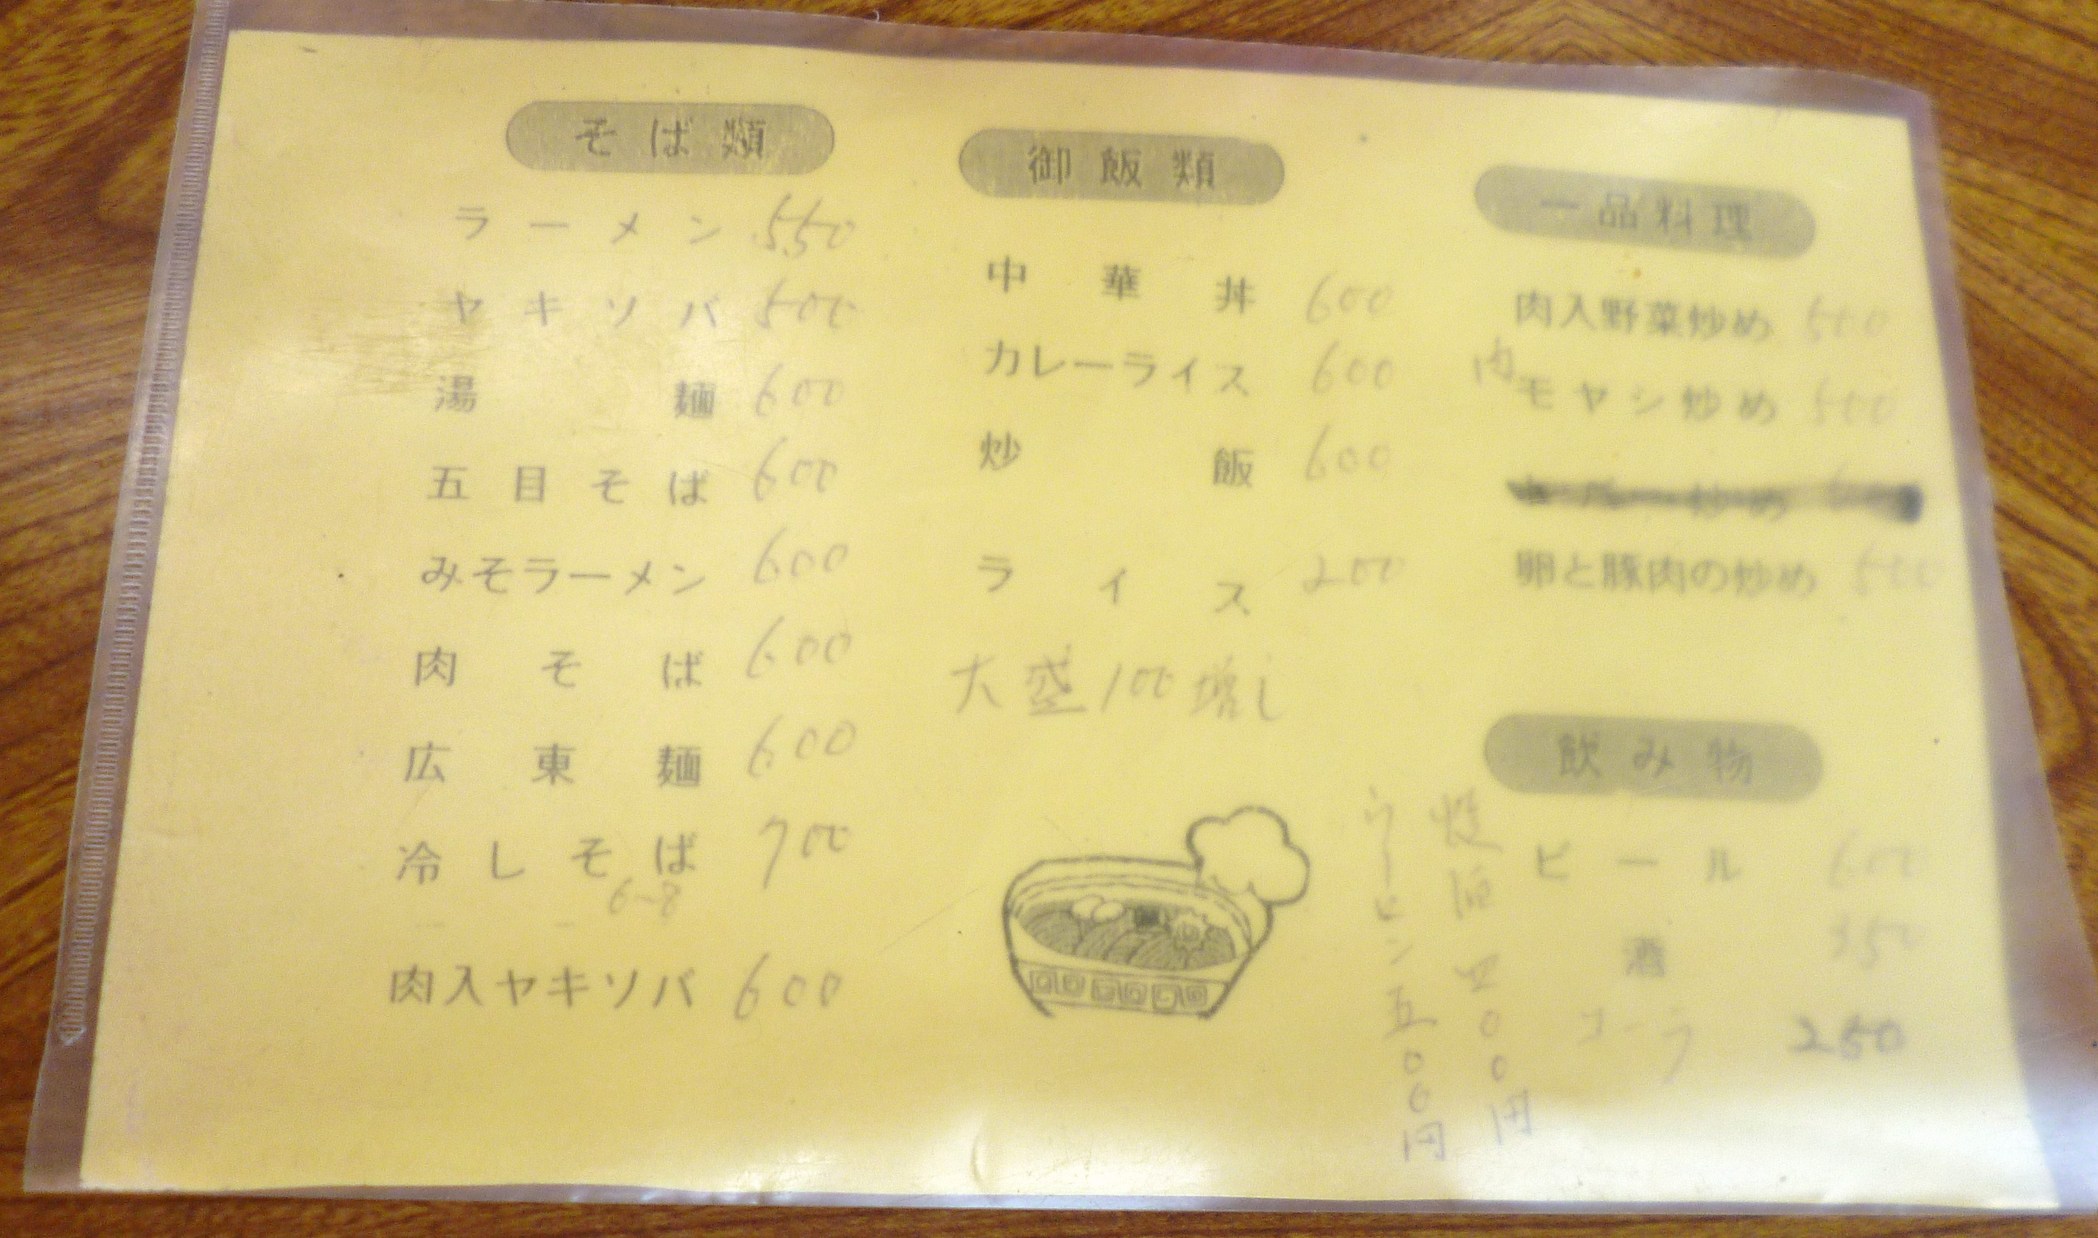 そば類
ラーメン 550
ヤキソバ 500
湯麺 600
五目そば 600
みそラーメン 600
肉そば 600
広東麺 600
冷しそば 700
6~8
肉入ヤキソバ 600
御飯類
中華丼 600
カレーライス 600
炒飯 600
ライス 200
大盛100増し
一品料理
肉入野菜炒め 500
肉モヤシ炒め 500
炒め
卵と豚肉の炒め 500
飲み物
ビール 600
酒 350
コーラ 250
焼酒四00円
ウーロン五00円